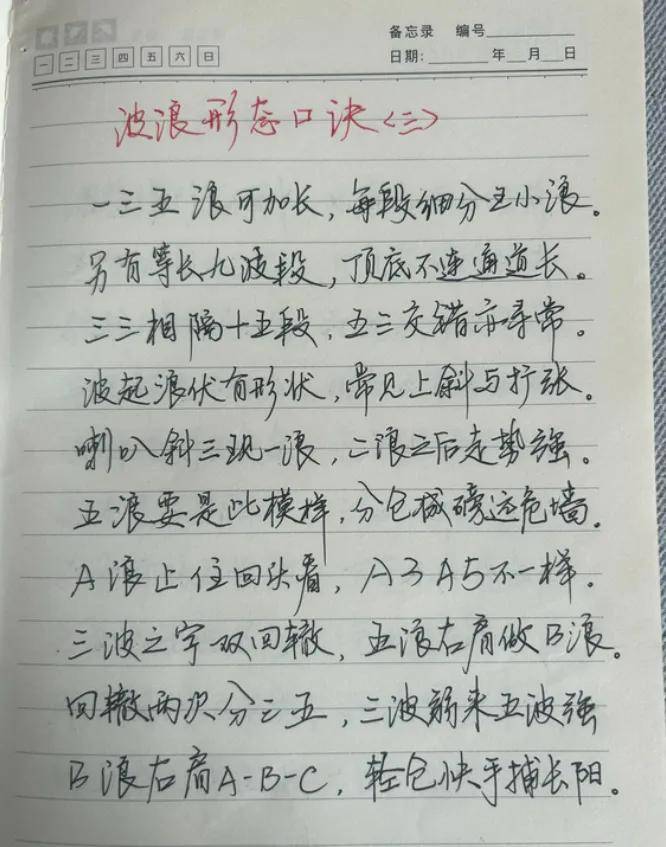 备忘录 编号
一 二 三 四 五 六 日
日期: 年 月 日
波浪形态口诀<三>
一三五浪可加长，每段细分五小浪。
另有等长九波段，顶底不连通道长。
三三相隔十五段，五三交错亦寻常。
波起浪伏有形状，常见上斜与扩张。
喇叭斜三现一浪，二浪之后走势强。
五浪要是此模样，分仓减磅远危墙。
A浪止住回头看，A3A5不一样。
三波之字双回辙，五浪右肩做B浪。
回辙两次分三五，三波弱来五波强
B浪右肩A-B-C，轻仓快手捕长阳。